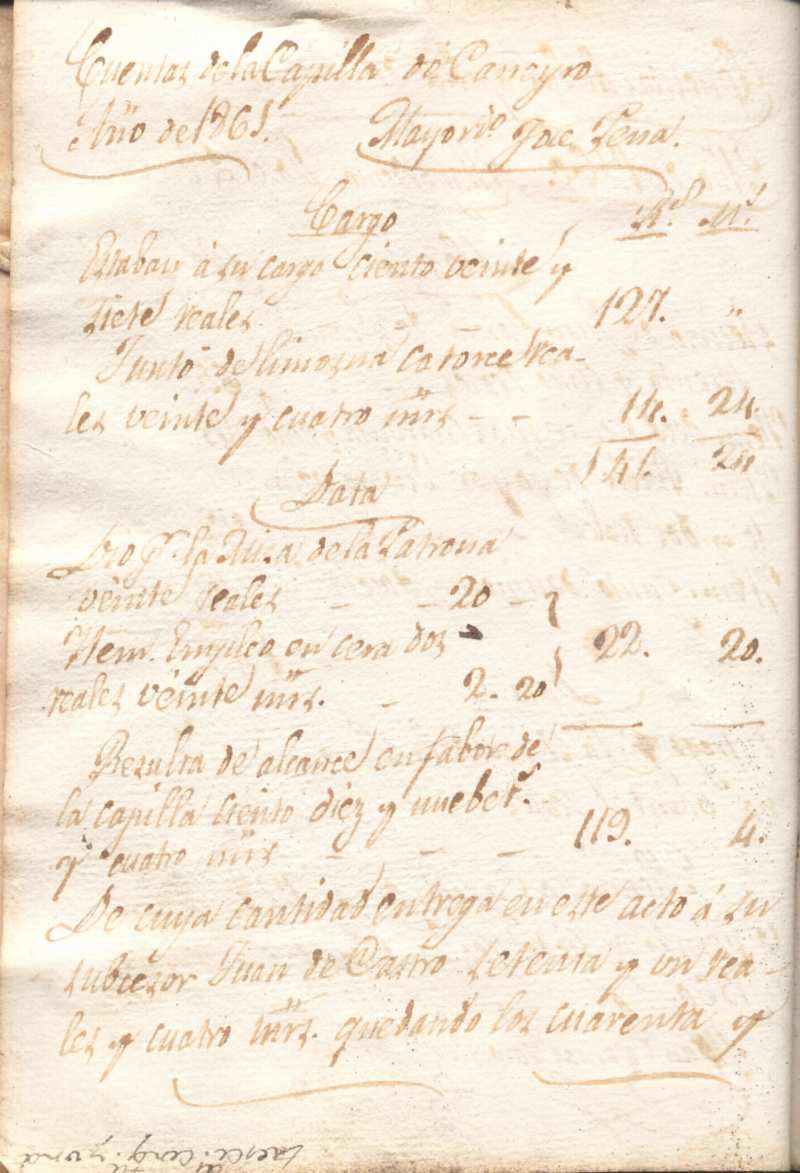 Cuentas de la Capilla de Carreyro
Año de 1861. Mayordº Jose Pena.
Cargo Rs. Ms.
Estaban á su cargo ciento veinte y
siete reales 127. "
Junto de limosna catorce rea-
les veinte y cuatro mrs - - 14. 24.
141. 24
Data
Dio pr. la Misa de la Patrona
veinte reales - - 20 -
Item. Empleo en cera dos 22. 20.
reales veinte mrs. - 2. 20
Resulta de alcance en fabor de
la capilla ciento diez y nuebe rs.
y cuatro mrs - - - 119. 4.
De cuya cantidad entrega en este acto á su
subcesor Juan de Castro setenta y un rea-
les y cuatro mrs. quedando los cuarenta y